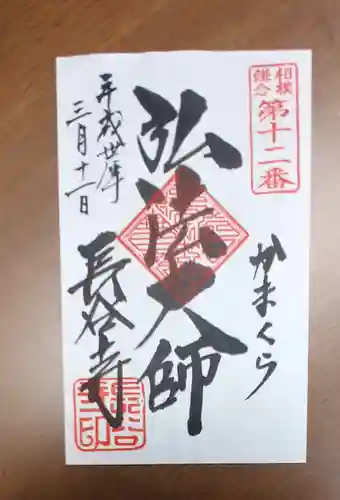 相模
鎌倉
第十二番
かまくら
弘法大師
平成卅年
三月十一日
長谷寺
長谷寺印